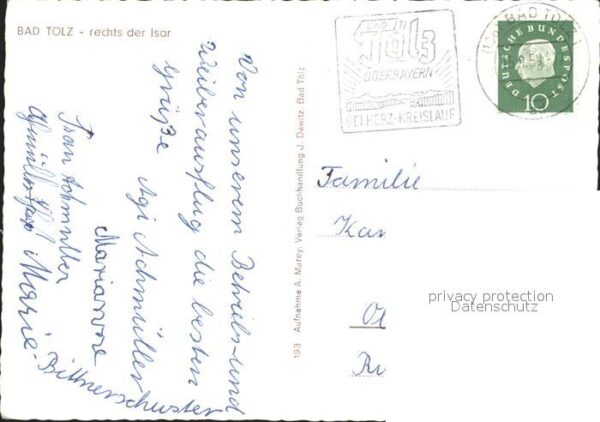 BAD TÖLZ - rechts der Isar
Von unserem Betriebs- und
Weiberausflug die besten
Grüße
Agi Achmüller
Marianne
Frau Achmüller
Marie
Bittnerschuster
193 Aufnahme A. Matey, Verlag Buchhandlung J. Dewitz, Bad Tölz
BAD
Tölz
OBERBAYERN
BEI HERZ-KREISLAUF
BAD TÖLZ 1
DEUTSCHE BUNDESPOST
10
Familie
Kar
privacy protection
Datenschutz